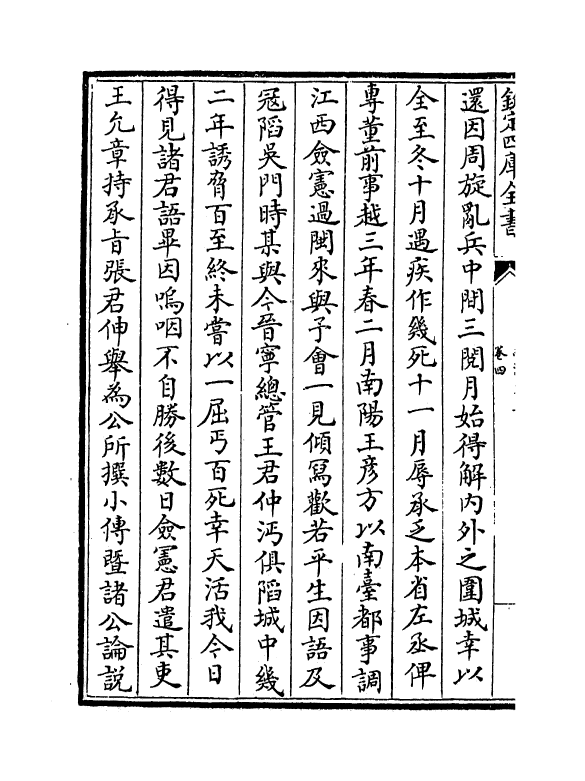 欽定四庫全書
卷四
還因周旋亂兵中間三閱月始得解内外之圍城幸以
全至冬十月遇疾作幾死十一月辱承乏本省左丞俾
專董前事越三年春二月南陽王彦方以南臺都事調
江西僉憲過閩來與予會一見傾寫歡若平生因語及
冦陷吳門時某與今晉寧總管王君仲沔俱陷城中幾
二年誘脅百至終未嘗以一屈丐百死幸天活我今日
得見諸君語畢因嗚咽不自勝後數日僉憲君遣其吏
王允章持承旨張君仲舉為公所撰小傳暨諸公論説